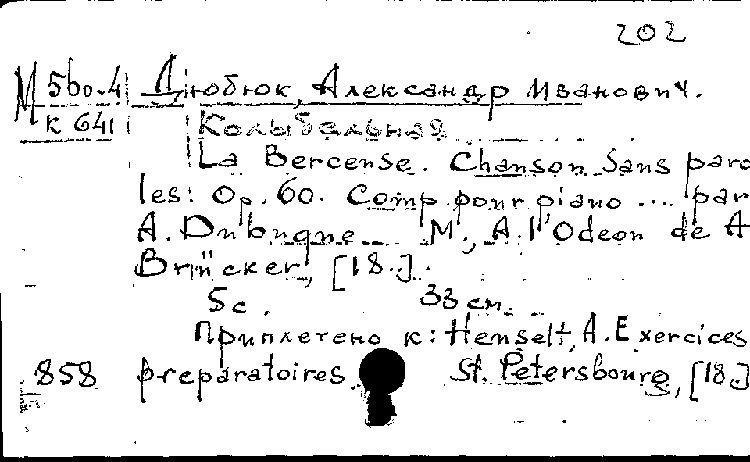 202
М 560.4 Дюбюк, Александр Иванович.
к 641 Колыбельная
La Bercense. Chanson sans paro
les: Op. 60. Comp pour piano ... par
A. Dubuque. M., A l'Odeon de A
Brücker, [18..].
5 с. 33 см.
Приплетено к: Henselt, A. Exercices
858 preparatoires. St. Petersbourg, [18.]